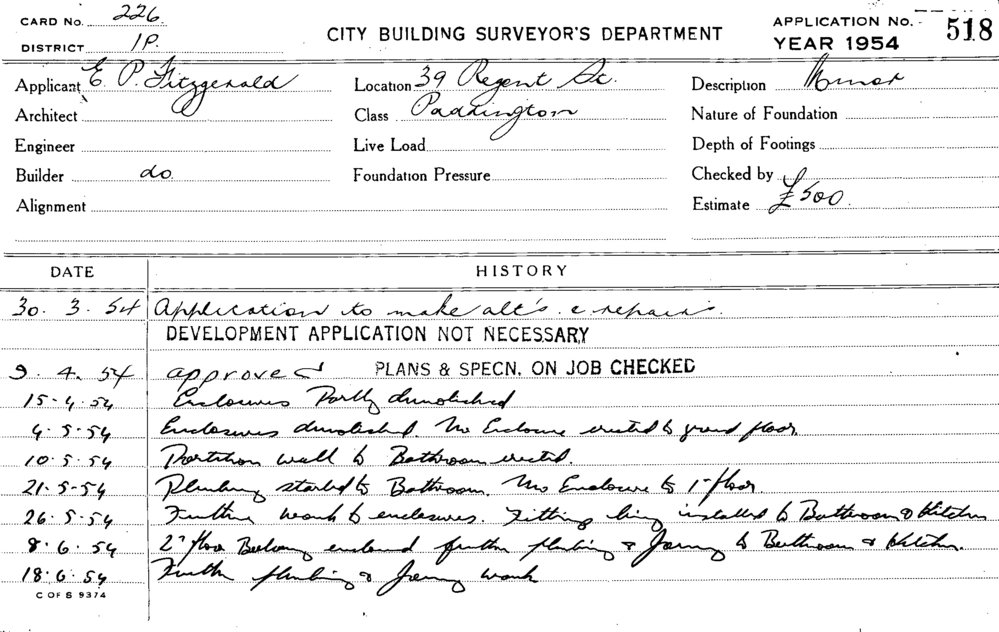 CARD No. 226.
DISTRICT 1P.
CITY BUILDING SURVEYOR'S DEPARTMENT
APPLICATION No. 518
YEAR 1954
Applicant E. P. Fitzgerald Location 39 Regent St. Description Minor
Architect Class Paddington Nature of Foundation
Engineer Live Load Depth of Footings
Builder do. Foundation Pressure Checked by
Alignment Estimate £500.
DATE HISTORY
30. 3. 54 Application to make alt's. & repairs.
DEVELOPMENT APPLICATION NOT NECESSARY
9. 4. 54 approved PLANS & SPECN. ON JOB CHECKED
15-4.54 Enclosures Partly demolished
4-5-54 Enclosures demolished. New Enclosure erected to ground floor
10.5.54 Partition wall to Bathroom erected.
21-5-54 Plumbing started to Bathroom. New Enclosure to 1st floor.
26.5.54 Further work to enclosures. Fitting being installed to Bathroom & kitchen
8.6.54 2nd floor Balcony enclosed further plumbing & Joinery to Bathroom & kitchen.
18.6.54 Further plumbing & Joinery work
C OF S 9374